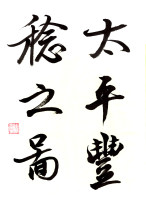 太平豐
稔之啚